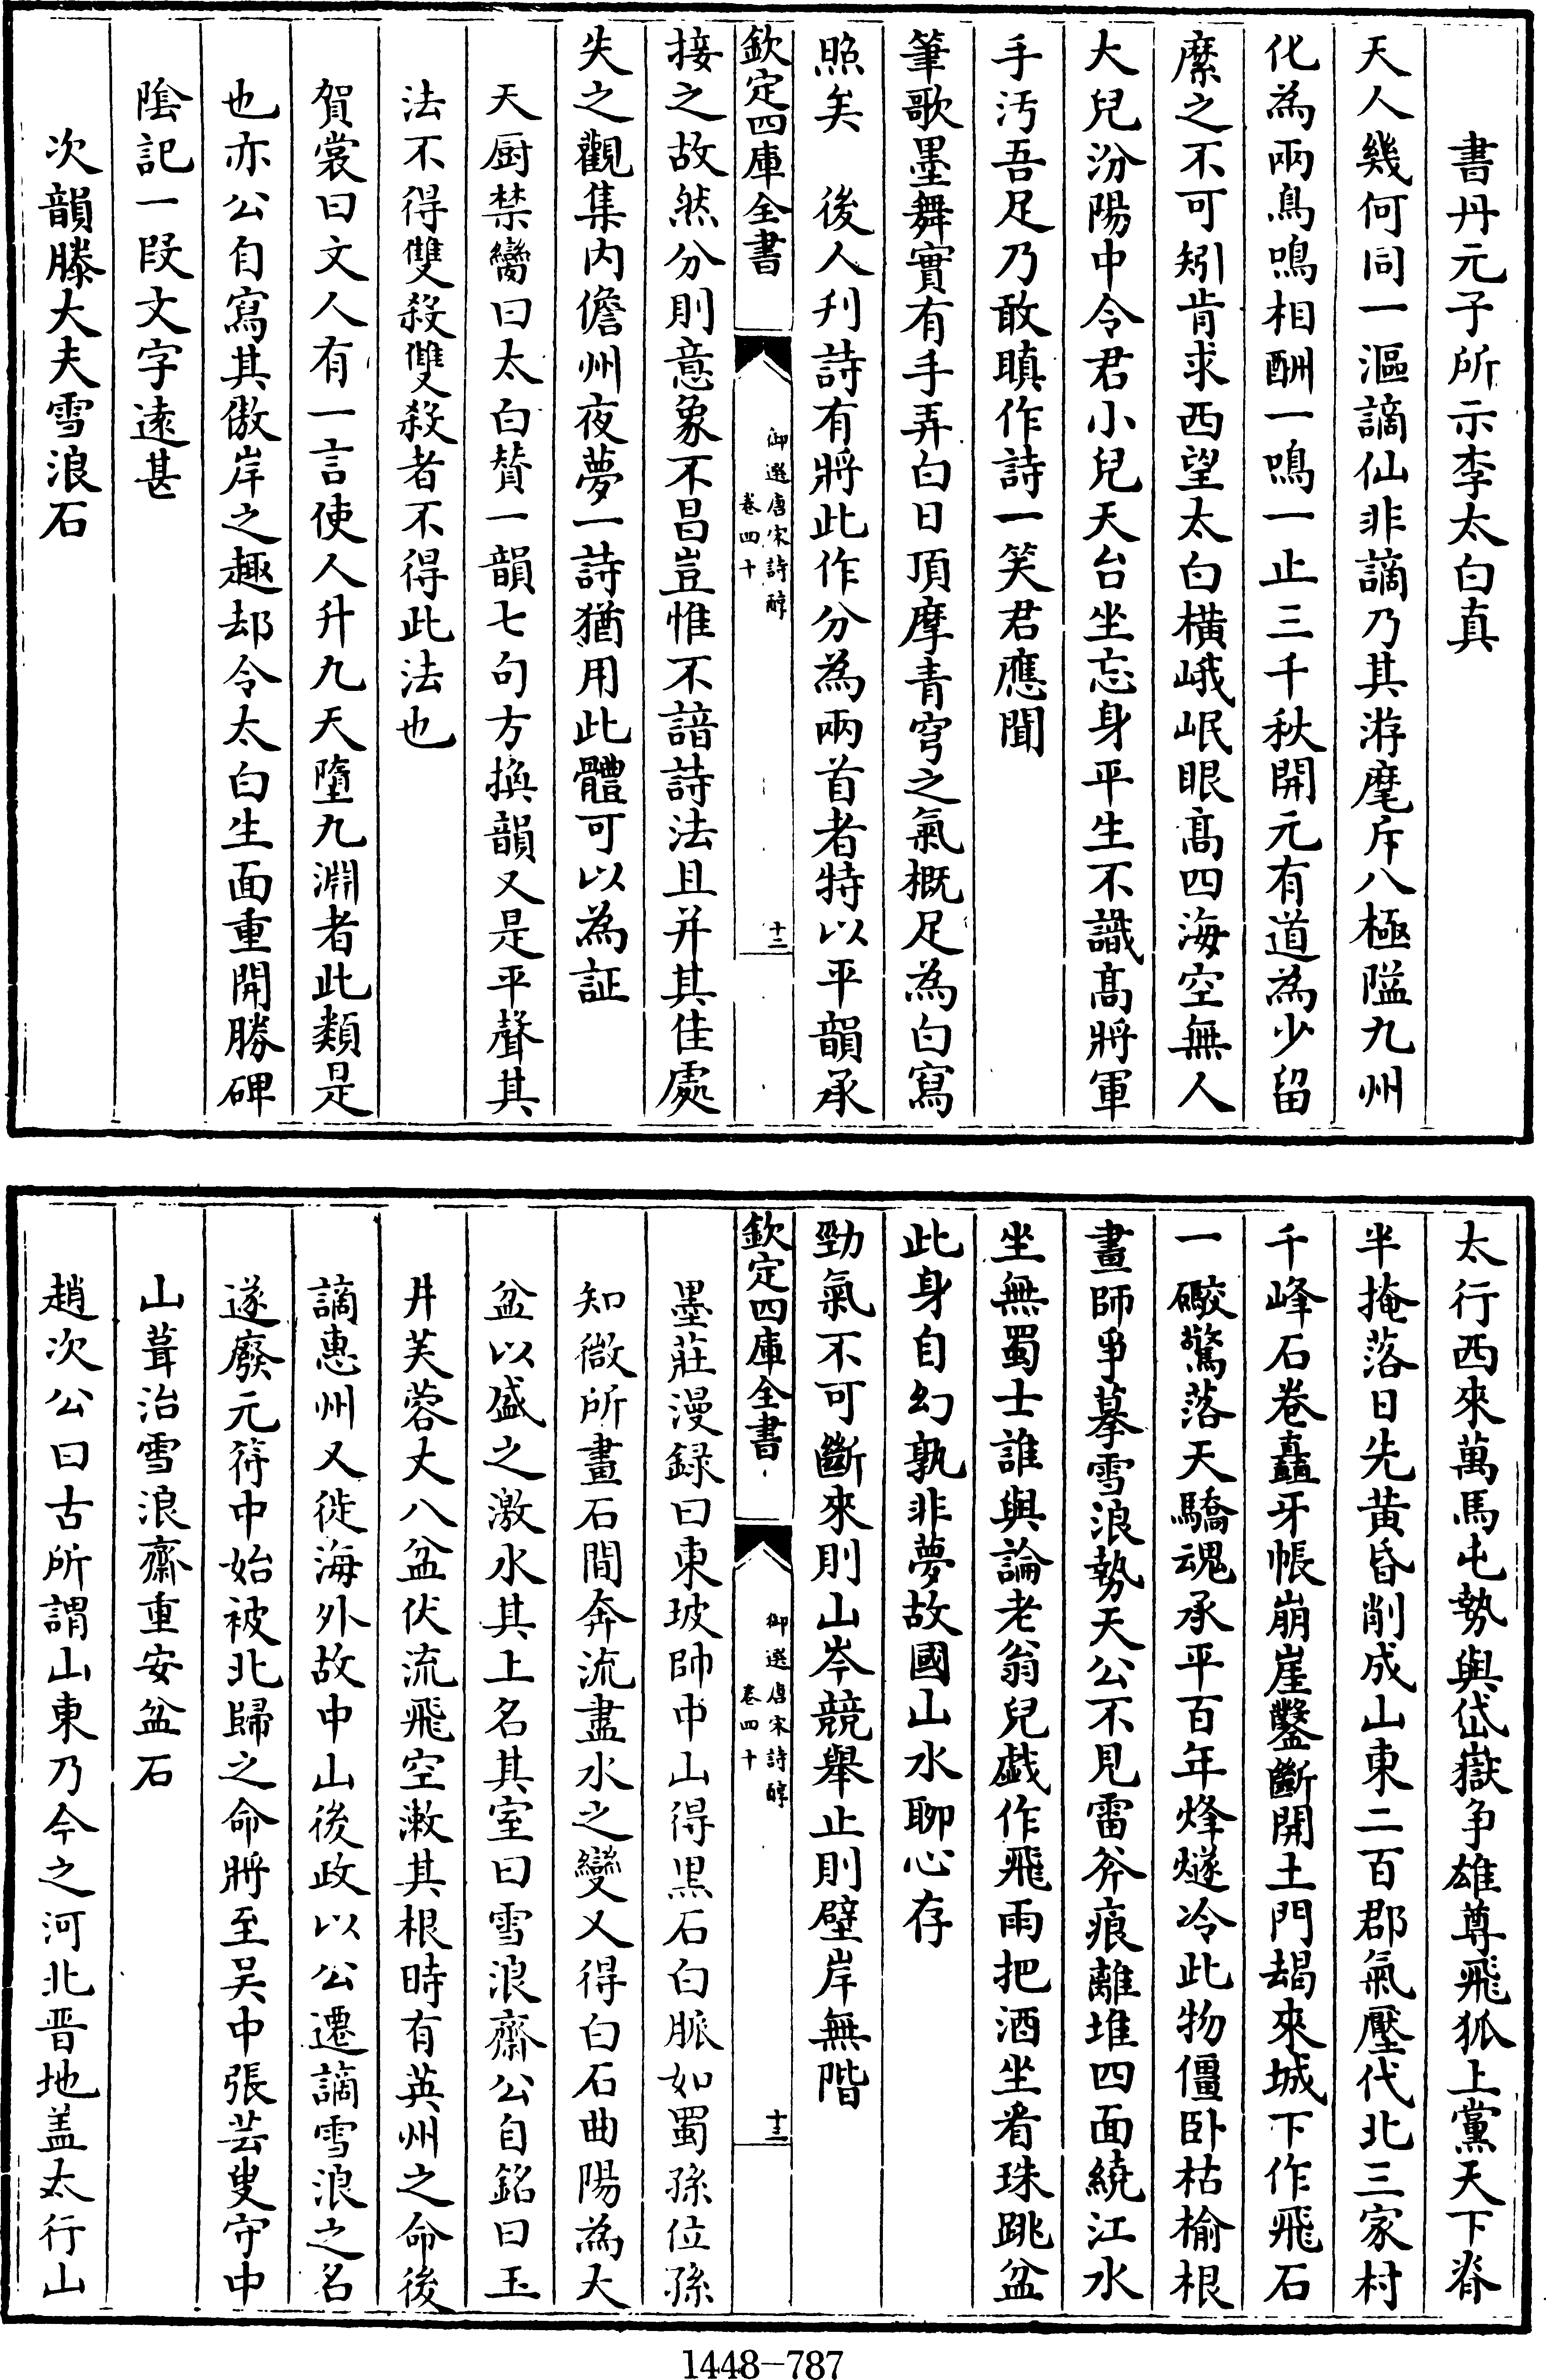 書丹元子所示李太白真
天人幾何同一漚謫仙非謫乃其游麾斥八極隘九州
化為兩鳥鳴相酬一鳴一止三千秋開元有道為少留
縻之不可矧肯求西望太白橫峨岷眼髙四海空無人
大兒汾陽中令君小兒天台坐忘身平生不識髙將軍
手汚吾足乃敢瞋作詩一笑君應聞
筆歌墨舞實有手弄白日頂摩青穹之氣概足為白寫
照矣　後人刋詩有將此作分為兩首者特以平韻承
欽定四庫全書
御選唐宋詩醇
卷四十
十二
接之故然分則意象不昌豈惟不諳詩法且并其佳處
失之觀集内儋州夜夢一詩猶用此體可以為証
天厨禁臠曰太白賛一韻七句方換韻又是平聲其
法不得雙殺雙殺者不得此法也
賀裳曰文人有一言使人升九天墮九淵者此類是
也亦公自寫其傲岸之趣却令太白生面重開勝碑
陰記一段文字逺甚
次韻滕大夫雪浪石
太行西來萬馬屯勢與岱嶽争雄尊飛狐上黨天下脊
半掩落日先黄昏削成山東二百郡氣壓代北三家村
千峰石卷矗牙帳崩崖鑿斷開土門朅來城下作飛石
一礮驚落天驕魂承平百年烽燧冷此物僵卧枯榆根
畫師爭摹雪浪勢天公不見雷斧痕離堆四面繞江水
坐無蜀士誰與論老翁兒戯作飛雨把酒坐看珠跳盆
此身自幻孰非夢故國山水聊心存
勁氣不可斷來則山岑競舉止則壁岸無階
欽定四庫全書
御選唐宋詩醇
卷四十
十三
墨莊漫録曰東坡帥中山得黒石白脈如蜀孫位孫
知微所畫石間奔流盡水之變又得白石曲陽為大
盆以盛之激水其上名其室曰雪浪齋公自銘曰玉
井芙蓉丈八盆伏流飛空漱其根時有英州之命後
謫惠州又徙海外故中山後政以公遷謫雪浪之名
遂廢元符中始被北歸之命將至吴中張芸叟守中
山葺治雪浪齋重安盆石
趙次公曰古所謂山東乃今之河北晋地盖太行山
1448-787